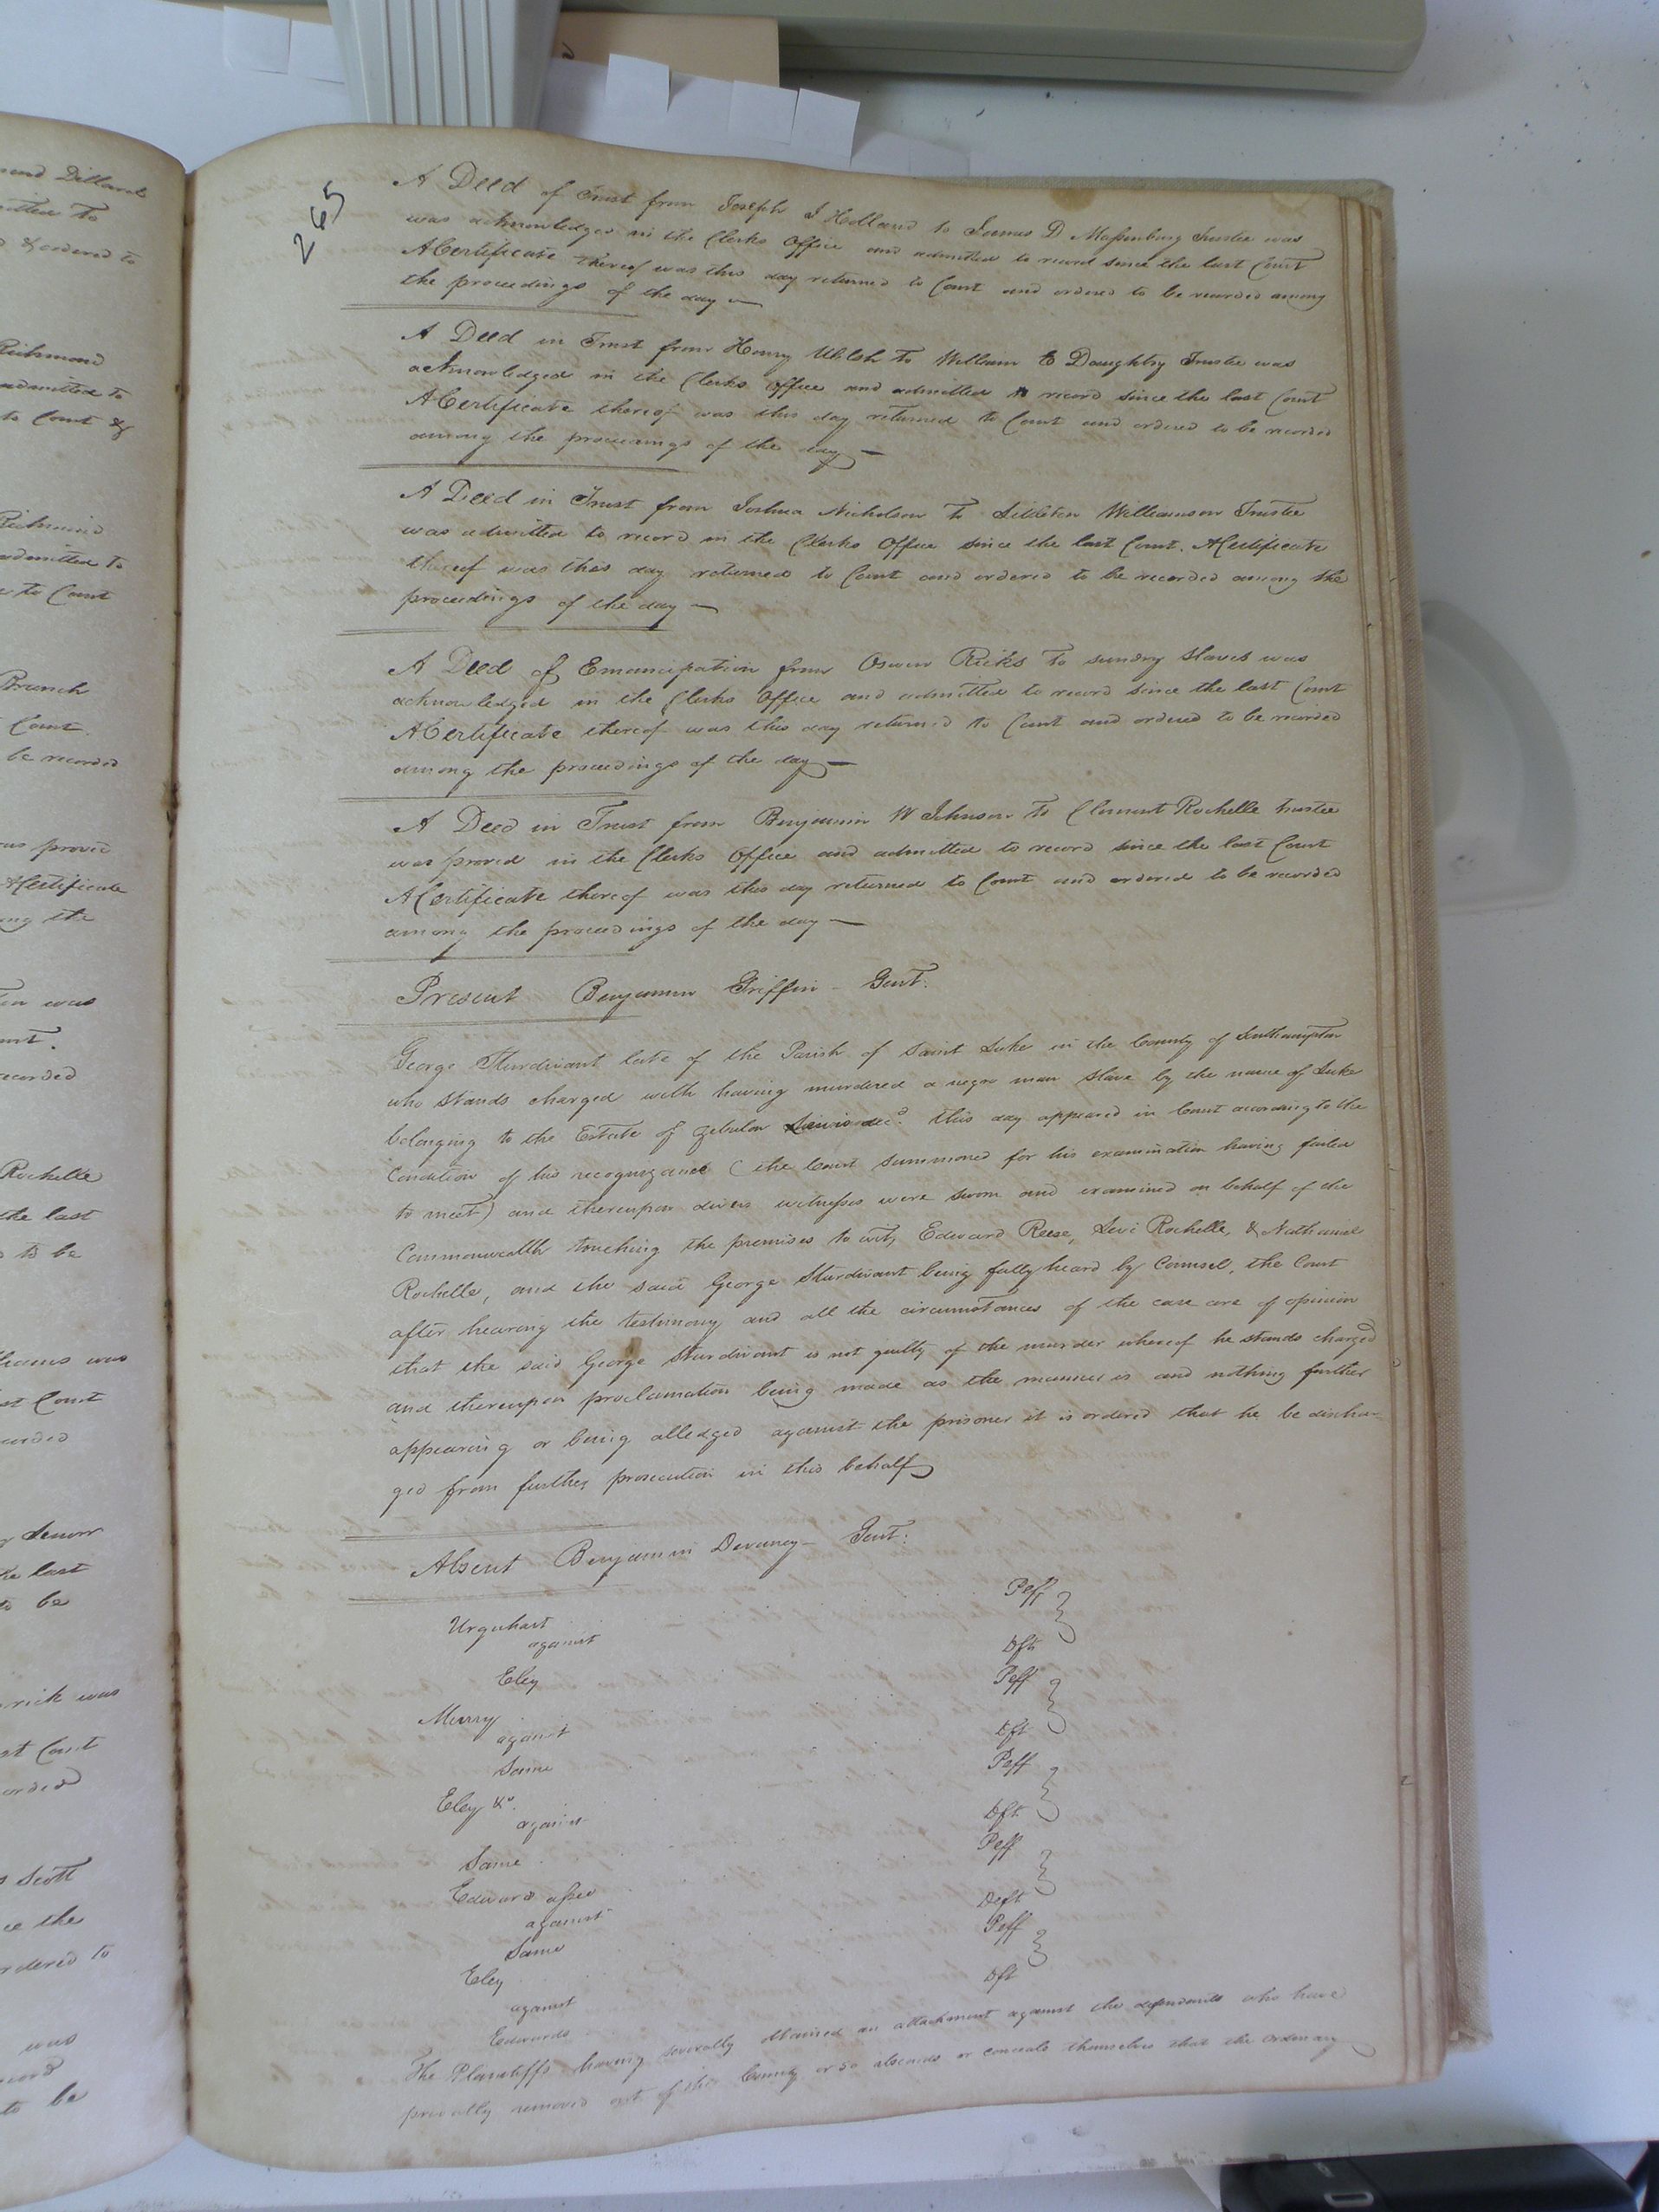 265
A Deed of Trust from Joseph J Holland to James D Massenburg Trustee was
was acknowledged in the Clerks Office and admitted to record since the last Court
A Certificate thereof was this day returned to Court and ordered to be recorded among
the proceedings of the day —
A Deed in Trust from Henry Welsh to William E Doughtry Trustee was
acknowledged in the Clerks office and admitted to record since the last Court
A Certificate thereof was this day returned to Court and ordered to be recorded
among the proceedings of the day —
A Deed in Trust from Joshua Nicholson To Littleton Williamson Trustee
was admitted to record in the Clerks Office since the last Court. A Certificate
thereof was this day returned to Court and ordered to be recorded among the
proceedings of the day —
A Deed of Emancipation from Oswin Ricks To sundry Slaves was
acknowledged in the Clerks Office and admitted to record since the last Court
A Certificate thereof was this day returned to Court and ordered to be recorded
among the proceedings of the day —
A Deed in Trust from Benjamin W Johnson To Clement Rochelle trustee
was proved in the Clerks Office and admitted to record since the last Court
A Certificate thereof was this day returned to Court and ordered to be recorded
among the proceedings of the day —
Present Benjamin Griffin - Gent.
George Sturdivant late of the Parish of Saint Luke in the County of Southampton
who stands charged with having murdered a negro man Slave by the name of Luke
belonging to the Estate of Zebulon decd. this day appeared in Court according to the
Condition of his recognizance (the Court summoned for his examination having failed
to meet) and thereupon divers witnesses were sworn and examined on behalf of the
Commonwealth touching the premises to wit, Edward Reese, Levi Rochelle, & Nathaniel
Rochelle, and the said George Sturdivant being fully heard by Counsel, the Court
after hearing the testimony and all the circumstances of the case are of opinion
that the said George Sturdivant is not guilty of the murder whereof he stands charged
and thereupon proclamation being made as the manner is and nothing further
appearing or being alledged against the prisoner it is ordered that he be dischar-
ged from further prosecution in this behalf
Absent Benjamin Devany - Gent.
Urquhart Peff
against
Eley Dft
Murry Peff
against
Same Dft
Eley &c. Peff
against
Same Dft
Edwards assee Peff
against
Same Deft
Eley Peff
against
Edwards Dft
The Plaintiffs having severally obtained an attachment against the defendants who have
privately removed out of this County or so absconds or conceals themselves that the ordinary